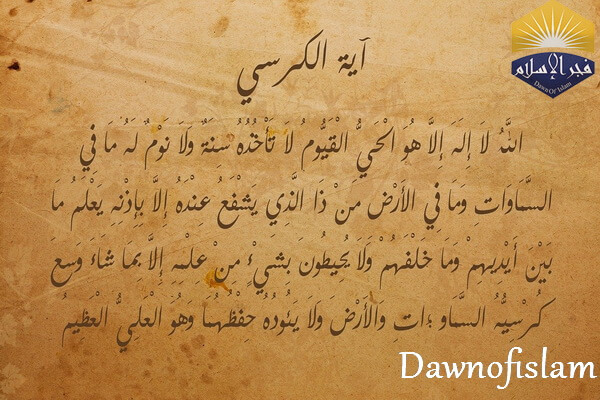 آية الكرسي
فجر الإسلام
Dawn Of Islam
اللَّهُ لَا إِلَهَ إِلَّا هُوَ الْحَيُّ الْقَيُّومُ لَا تَأْخُذُهُ سِنَةٌ وَلَا نَوْمٌ لَهُ مَا فِي
السَّمَاوَاتِ وَمَا فِي الْأَرْضِ مَنْ ذَا الَّذِي يَشْفَعُ عِنْدَهُ إِلَّا بِإِذْنِهِ يَعْلَمُ مَا
بَيْنَ أَيْدِيهِمْ وَمَا خَلْفَهُمْ وَلَا يُحِيطُونَ بِشَيْءٍ مِنْ عِلْمِهِ إِلَّا بِمَا شَاءَ وَسِعَ
كُرْسِيُّهُ السَّمَاو ؛اتِ وَالْأَرْضَ وَلَا يَئُودُهُ حِفْظُهُمَا وَهُوَ الْعَلِيُّ الْعَظِيمُ
Dawnofislam